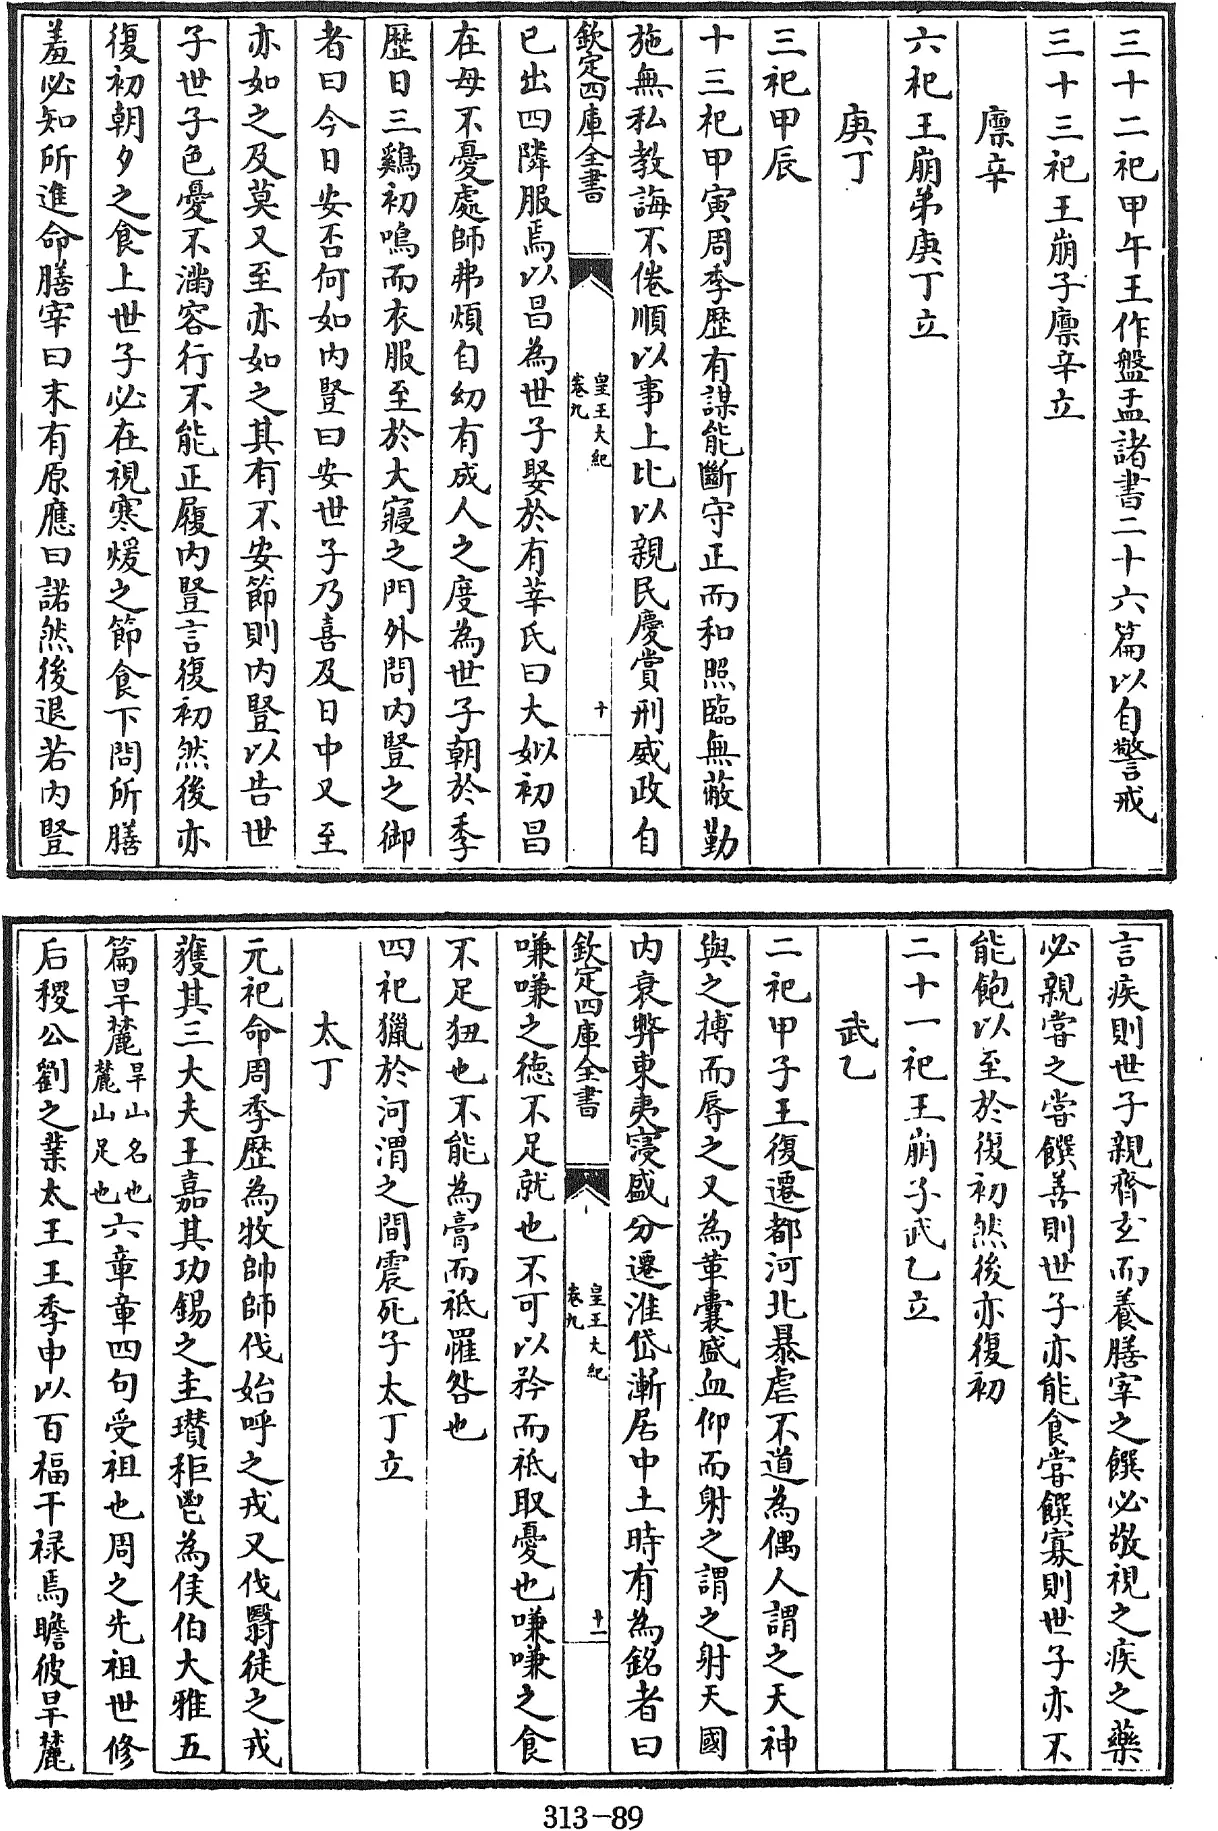 三十二祀甲午王作盤盂諸書二十六篇以自警戒
三十三祀王崩子廪辛立
廪辛
六祀王崩弟庚丁立
庚丁
三祀甲辰
十三祀甲寅周季歴有謀能斷守正而和照臨無蔽勤
施無私教誨不倦順以事上比以親民慶賞刑威政自
欽定四庫全書
皇王大紀
卷九
十
已出四隣服焉以昌為世子娶於有莘氏曰大姒初昌
在母不憂處師弗煩自幼有成人之度為世子朝於季
歴日三鷄初鳴而衣服至於大寢之門外問内豎之御
者曰今日安否何如内豎曰安世子乃喜及日中又至
亦如之及莫又至亦如之其有不安節則内豎以告世
子世子色憂不滿容行不能正履内豎言復初然後亦
復初朝夕之食上世子必在視寒煖之節食下問所膳
羞必知所進命膳宰曰末有原應曰諾然後退若内豎
言疾則世子親齊玄而養膳宰之饌必敬視之疾之藥
必親嘗之嘗饌善則世子亦能食嘗饌寡則世子亦不
能飽以至於復初然後亦復初
二十一祀王崩子武乙立
武乙
二祀甲子王復遷都河北暴虐不道為偶人謂之天神
與之搏而辱之又為革囊盛血仰而射之謂之射天國
内衰弊東夷寖盛分遷淮岱漸居中土時有為銘者曰
欽定四庫全書
皇王大紀
卷九
十一
嗛嗛之德不足就也不可以矜而祗取憂也嗛嗛之食
不足狃也不能為膏而祗罹咎也
四祀獵於河渭之間震死子太丁立
太丁
元祀命周季歴為牧師師伐始呼之戎又伐翳徒之戎
獲其三大夫王嘉其功錫之圭瓚秬鬯為侯伯大雅五
篇旱麓旱山名也麓山足也六章章四句受祖也周之先祖世修
后稷公劉之業太王王季申以百福干禄焉瞻彼旱麓
313-89